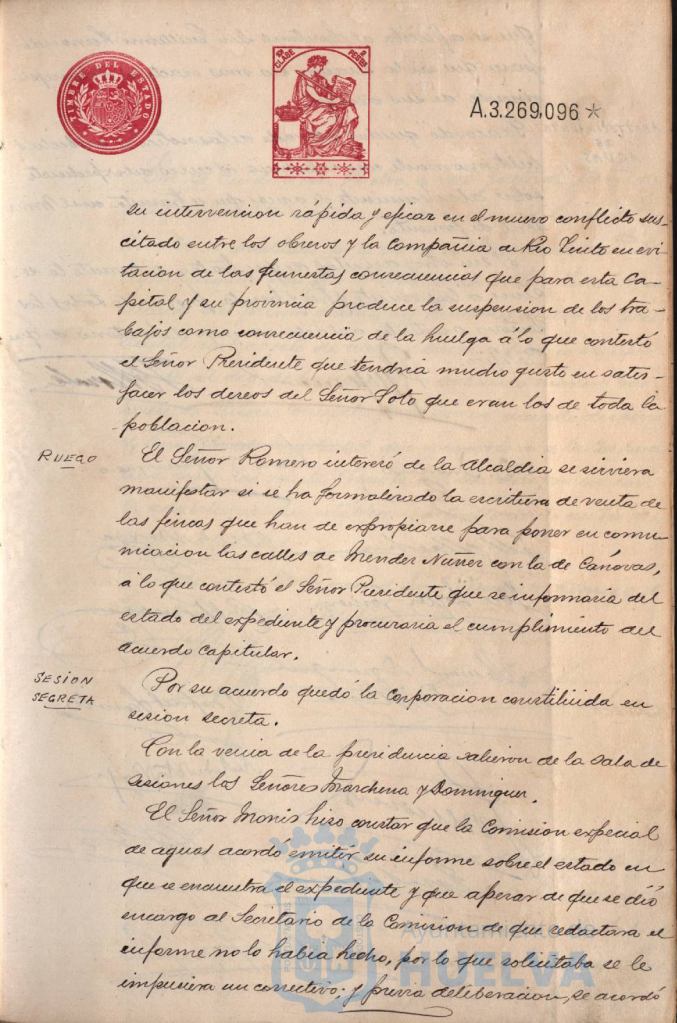 TIMBRE DEL ESTADO
CLASE
PESETAS
A.3.269,096 *
su intervencion rápida y eficaz en el nuevo conflicto sus-
citado entre los obreros y la Compañia de Rio Tinto en evi
tacion de las funestas consecuencias que para esta Ca-
pital y su provincia produce la suspension de los tra-
bajos como consecuencia de la huelga á lo que contestó
el Señor Presidente que tendria mucho gusto en satis-
facer los deseos del Señor Soto que eran los de toda la
poblacion.
RUEGO
El Señor Romero interesó de la Alcaldia se sirviera
manifestar si se ha formalizado la escritura de venta de
las fincas que han de expropiarse para poner en comu
nicacion las calles de Mendez Nuñez con la de Cánovas,
á lo que contestó el Señor Presidente que se informaria del
estado del expediente y procuraria el cumplimiento del
acuerdo capitular.
SESION
SEGRETA
Por su acuerdo quedó la corporacion constituida en
sesion secreta.
Con la venia de la presidencia salieron de la sala de
sesiones los Señores Marchena y Dominguez.
El Señor Monis hizo constar que la Comision especial
de aguas acordó emitir su informe sobre el estado en
que se encuentra el expediente y que apesar de que se dió
encargo al Secretario de la Comision de que redactara el
informe no lo habia hecho, por lo que solicitaba se le
impusiera un correctivo; y previa deliberacion, se acordó
Ayuntamiento de
HUELVA